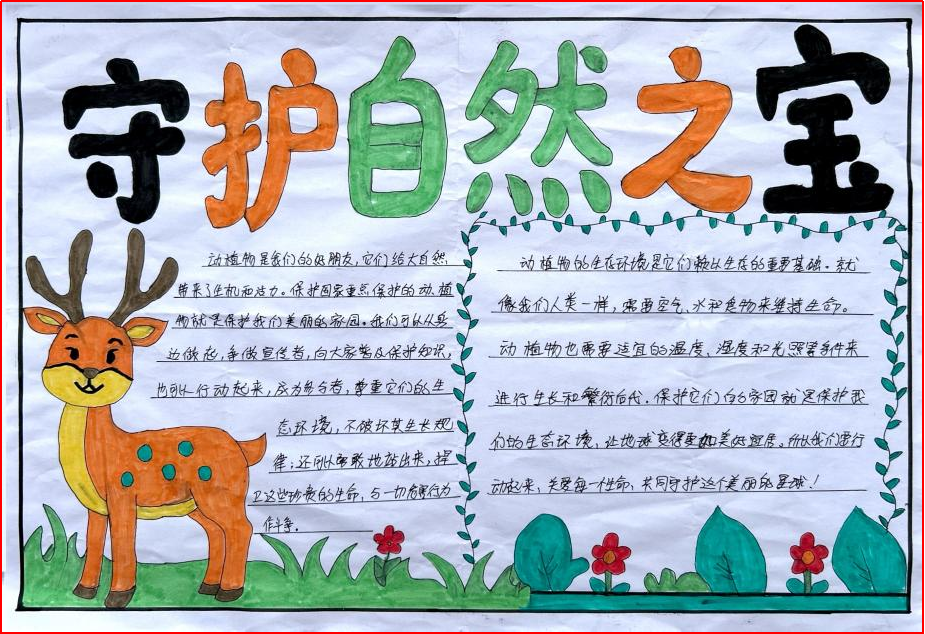 守护自然之宝
动植物是我们的好朋友，它们给大自然
带来了生机和活力。保护国家重点保护的动、植
物就是保护我们美丽的家园。我们可以从身
边做起，争做宣传者，向大家普及保护知识，
也可以行动起来，成为参与者，尊重它们的生
态环境，不破坏其生长规
律；还可以勇敢地站出来，捍
卫这些珍贵的生命，与一切危害行为
作斗争。
动植物的生存环境是它们赖以生存的重要基础。就
像我们人类一样，需要空气、水和食物来维持生命。
动植物也需要适宜的温度、湿度和光照等条件来
进行生长和繁衍后代。保护它们的家园就是保护我
们的生态环境，让地球变得更加美好宜居。所以我们要行
动起来，关爱每一个生命，共同守护这个美丽的星球！